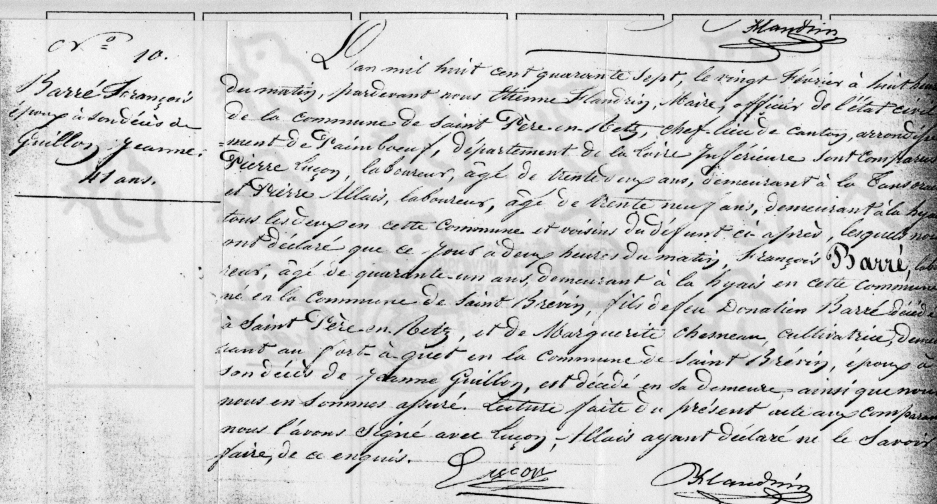 Flandrin
N.o 10.
Barré François
époux à son décès de
Guillon Jeanne.
41 ans.
L'an mil huit cent quarante sept, le vingt Février à huit heures
du matin, pardevant nous Etienne Flandrin, Maire, officier de l'état civil
de la commune de Saint Père-en-Retz, chef-lieu de canton, arrondisse
=ment de Paimbœuf, département de la Loire Inférieure sont comparus
Pierre Luçon, laboureur, âgé de trente deux ans, demeurant à la
et Pierre Allais, laboureur, âgé de trente neuf ans, demeurant à la hyais
tous les deux en cette commune et voisins du défunt ci après, lesquels nous
ont déclaré que ce jour à deux heures du matin, François Barré, labou
reur, âgé de quarante-un ans, demeurant à la hyais en cette commune
né en la commune de Saint Brevin, fils de feu Donatien Barré décédé
à Saint Père en Retz, et de Marguerite Chesneau, cultivatrice, demeu
rant au fort-à-quet en la commune de Saint Brevin, époux à
son décès de Jeanne Guillon, est décédé en sa demeure, ainsi que nous
nous en sommes assuré. Lecture faite du présent acte aux comparants
nous l'avons signé avec Luçon, Allais ayant déclaré ne le savoir
faire, de ce enquis.
Luçon
Flandrin